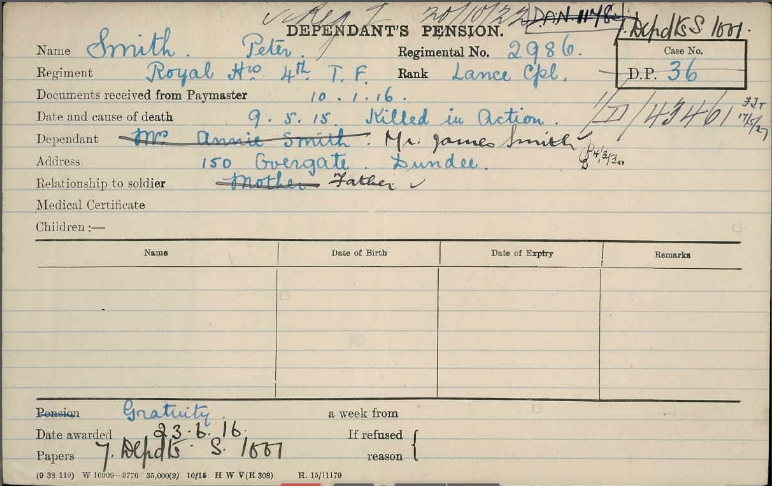 Reg I 20/10/22 DAN 1178
DEPENDANT'S PENSION. 7. Depdts S. 1001.
Name Smith. Peter. Regimental No. 2986. Case No.
Regiment Royal Hrs 4th T. F. Rank Lance Cpl. D.P. 36
Documents received from Paymaster 10.1.16.
Date and cause of death 9.5.15. Killed in Action. 1/D/43461
Dependant Mrs Annie Smith. Mr. James Smith
Address 150 Overgate. Dundee. 4/3/20
Relationship to soldier Mother Father
Medical Certificate
Children :—
Name Date of Birth Date of Expiry Remarks
Pension Gratuity. a week from
Date awarded 23.6.16. If refused
Papers 7. Depdts S. 1001 reason
(9 38 110) W 10909—3776 35,000(2) 10/15 H W V(R 308) H. 15/11179